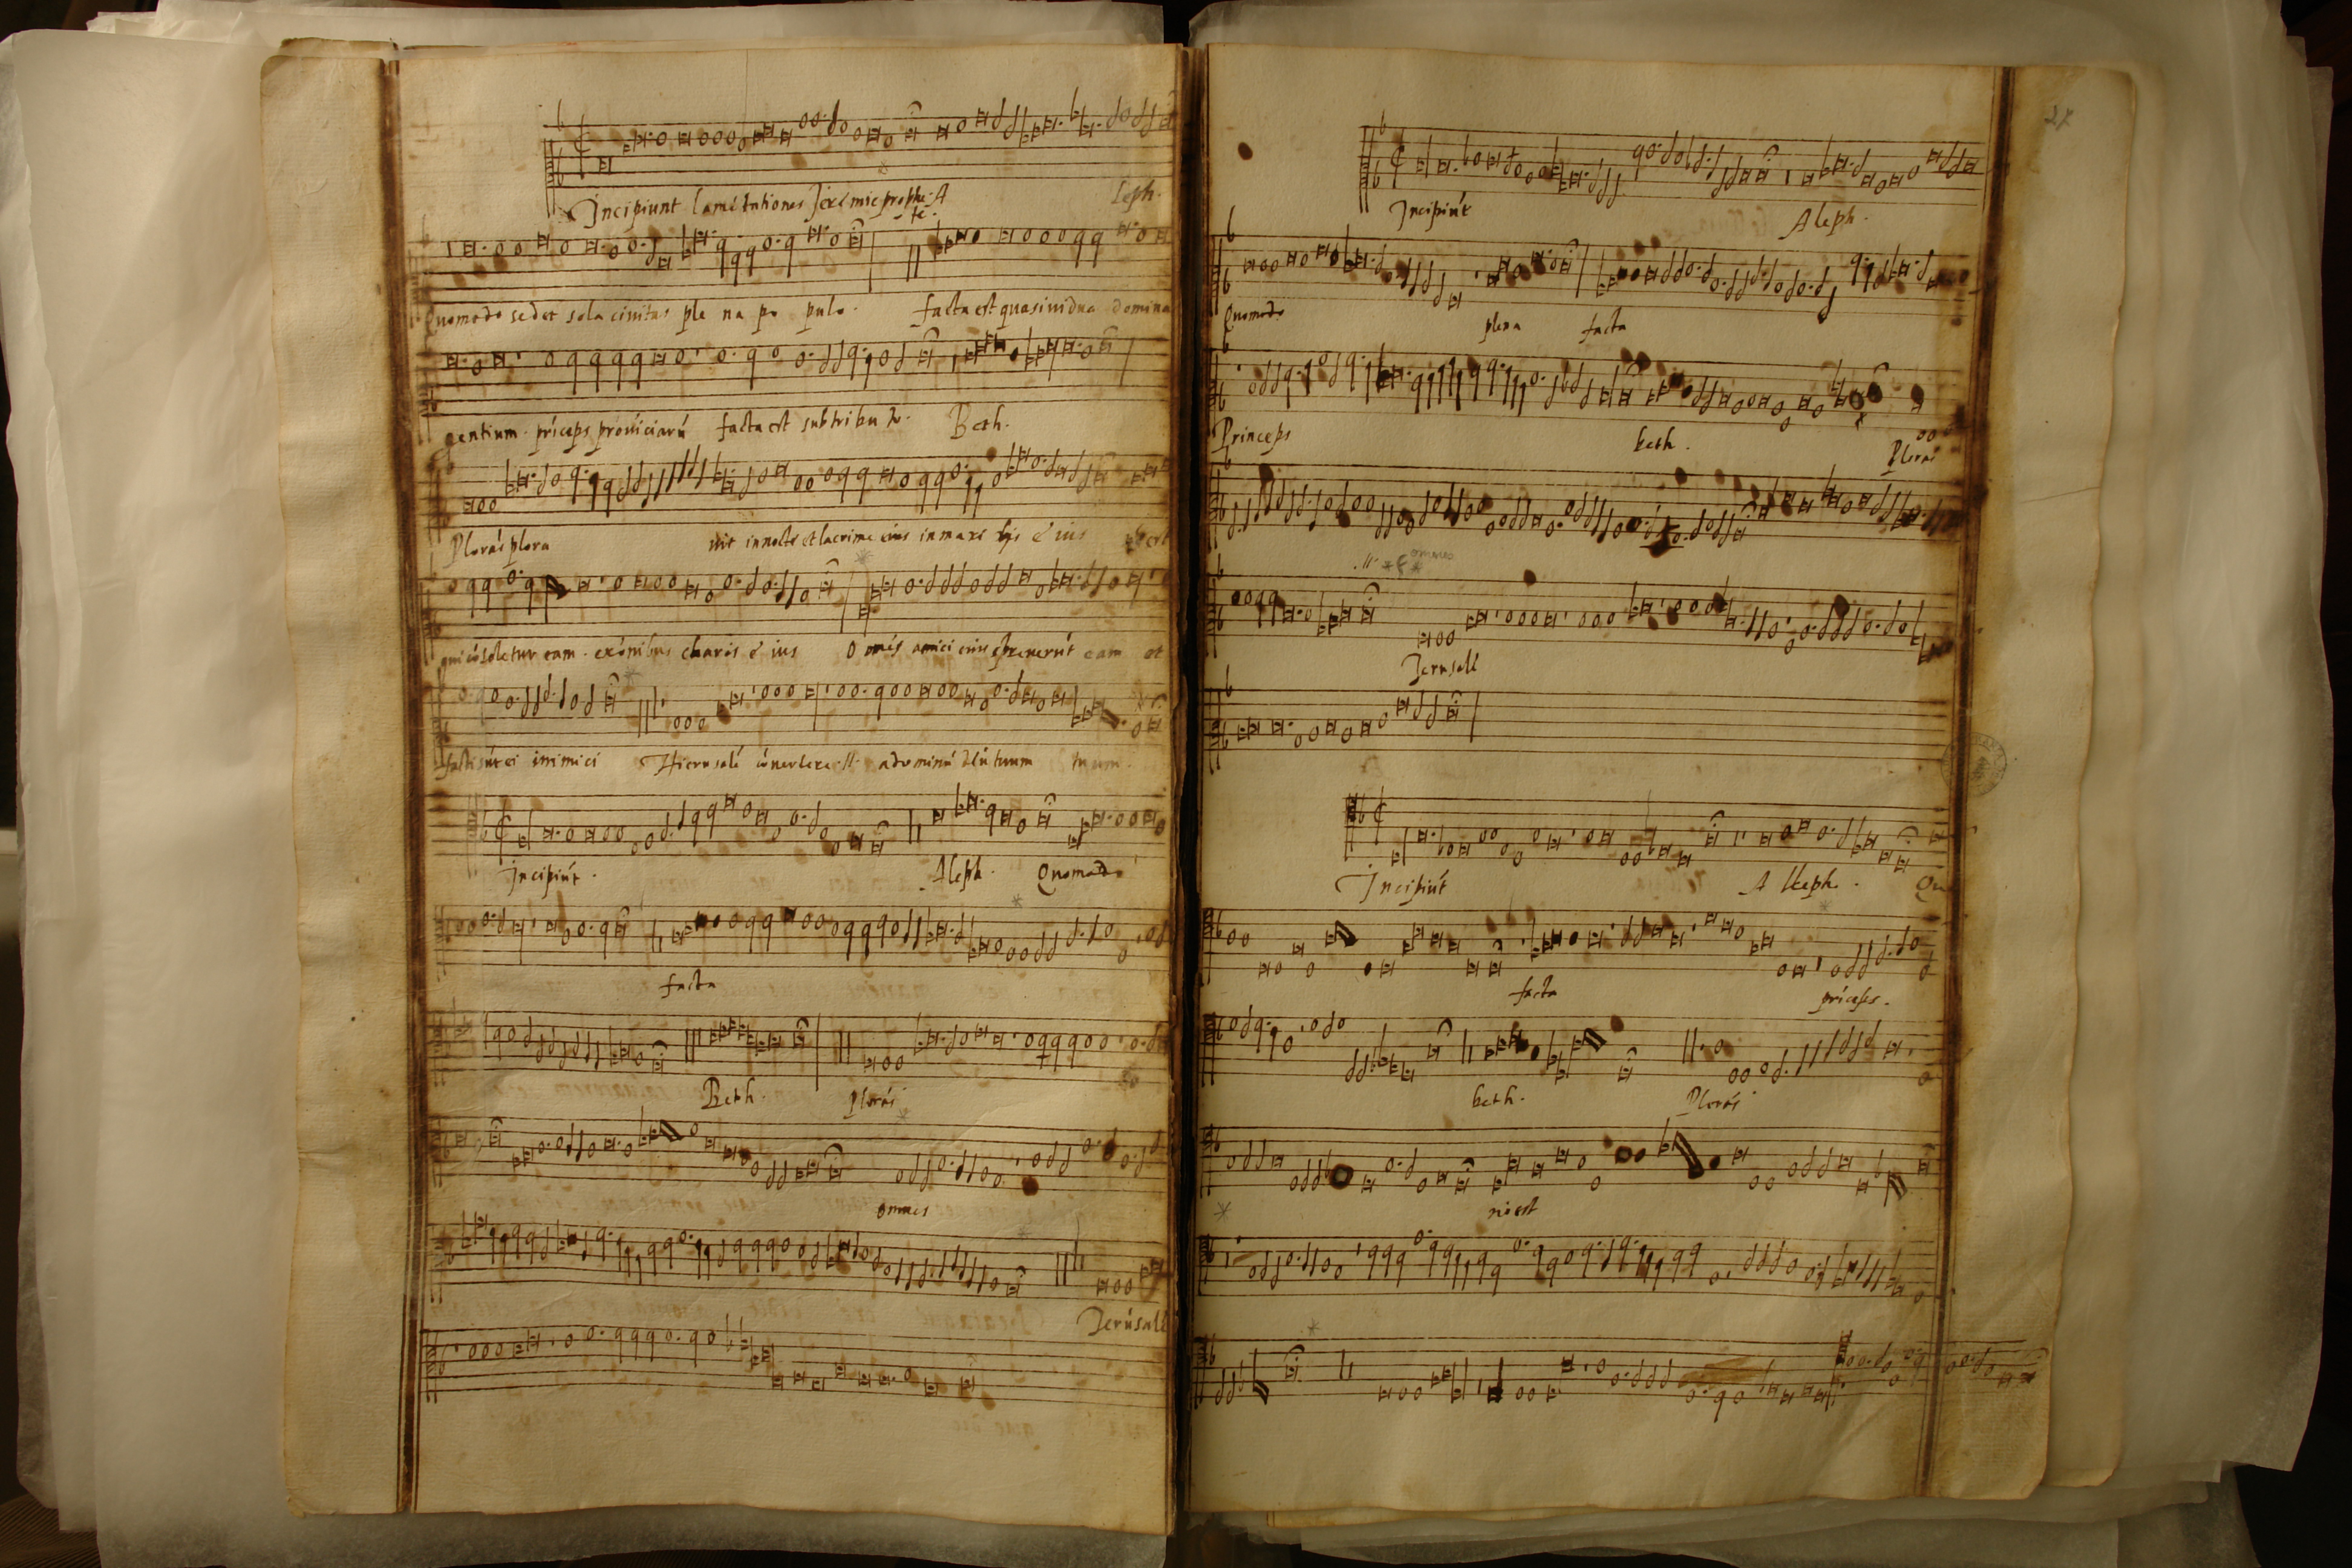 Incipiunt lamétationes Jeremie prophe te. A leph.
Quomodo sedet sola civitas ple na po pulo. facta est quasi vidua domina
gentium. príceps províciarú facta est sub tributo. Beth.
Plorás plora vit in nocte et lacrime eius in maxi lijs e ius
qui cósoletur eam. ex ómnibus charis e ius O més amici eius spreverút eam et
facti sút ei inimici Hierusalé cóvertere .//. ad dominú deú tuum tuum.
Incipiút. Aleph. Quomodo
facta
Beth. Plorás
omnes
Jerúsalé
27
Incipiút Aleph.
Quomodo plena facta
Princeps beth. Plorás
.//. omnes
Jerusalé
Incipiút A lleph. Qu
facta prícéps.
beth. Plorás
nó est